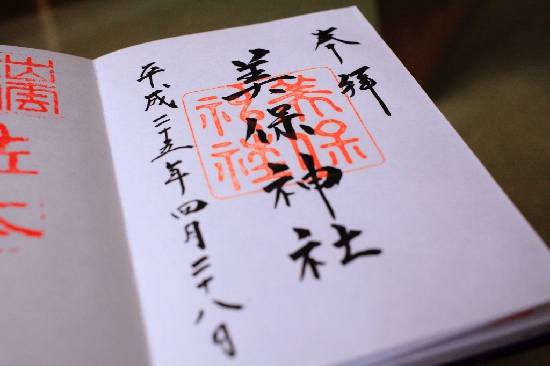 奉拝
美保神社
美保
神社
平成二十五年四月二十八日